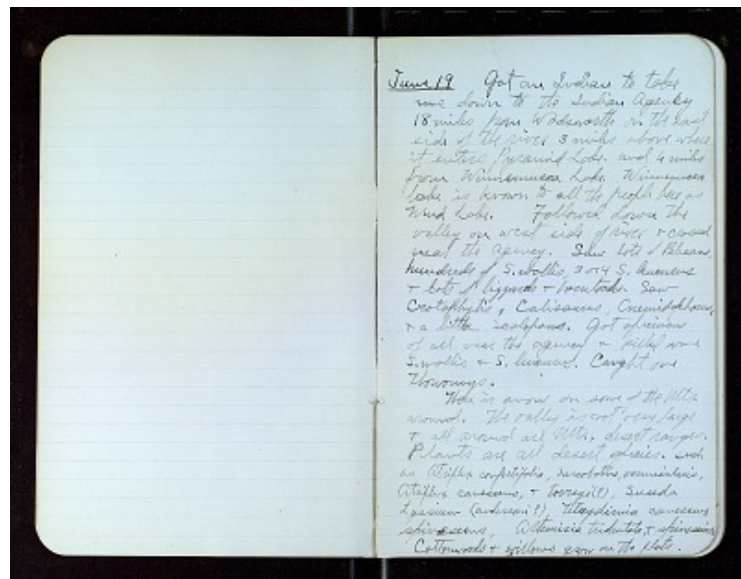 June 19 Got an Indian to take
me down to the Indian Agency
18 miles from Wadsworth on the east
side of the river 3 miles above where
it enters Pyramid Lake. and 4 miles
from Winnemucca Lake. Winnemucca
lake is known to all the people here as
Mud Lake. Followed down the
valley on west side of river & crossed
near the agency. Saw lots of Pelicans,
hundreds of S. mollis, 3 or 4 S.
& lots of lizzards Saw
Crotaphytus, Calisaurus, Cnemidophorus,
& a little sceloporus. Got specimens
of all near the agency & killed some
S. mollis & S. Caught one
Thomomys.
There is snow on some of the Mts
around. The valley is not very large
& all around are Mts, desert ranges.
Plants are all desert species. such
as Atriplex confertifolia, sarcobatus, vermiculatus,
Atriplex canescens, & torreyi(?), Sueeda
Lycium (andersoni?), Tetradymia canescens
spinescens, Artemisia tridentata, & spinescens
Cottonwoods & willows grow on the flats.